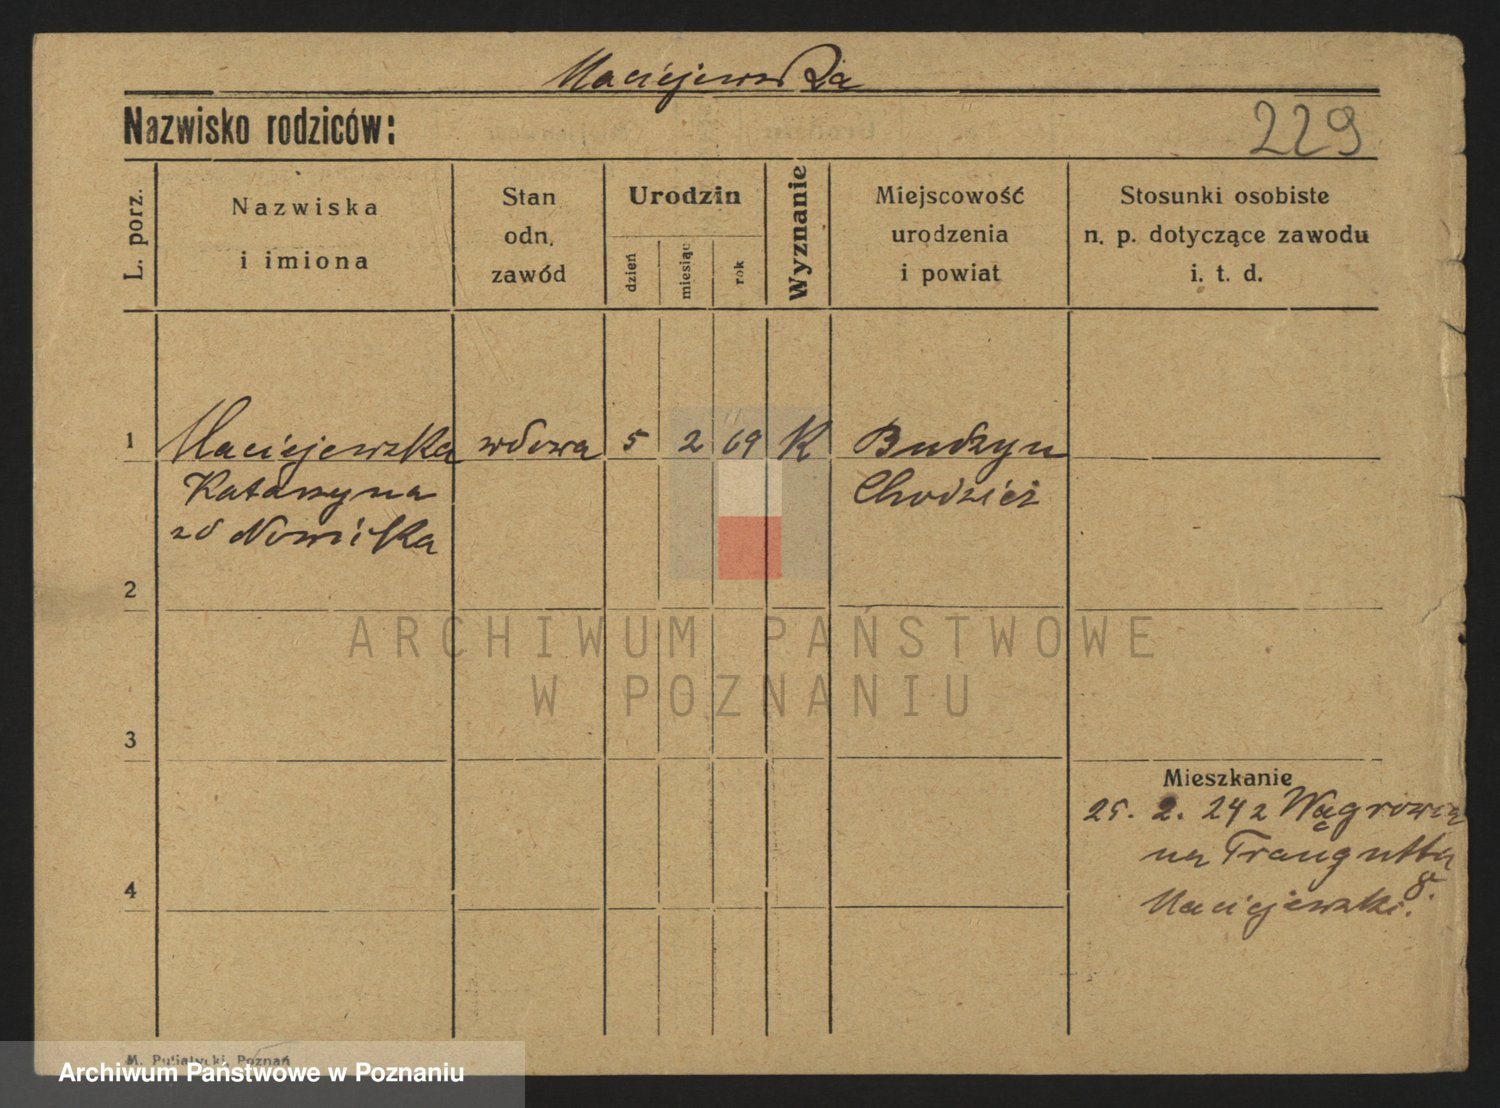 Maciejewska
Nazwisko rodziców:
229
L. porz.
Nazwiska
i imiona
Stan
odn.
zawód
Urodzin
dzień
miesiąc
rok
Wyznanie
Miejscowość
urodzenia
i powiat
Stosunki osobiste
n. p. dotyczące zawodu
i. t. d.
1 Maciejewska wdowa 5 2 69 K Budzyn
Katarzyna Chodzież
zd Nowicka
2
ARCHIWUM PAŃSTWOWE
W POZNANIU
3
Mieszkanie
25. 2. 24 z Wągrowca
na Traugutta
8.
4
Maciejewski.
M. Putiatycki, Poznań
Archiwum Państwowe w Poznaniu